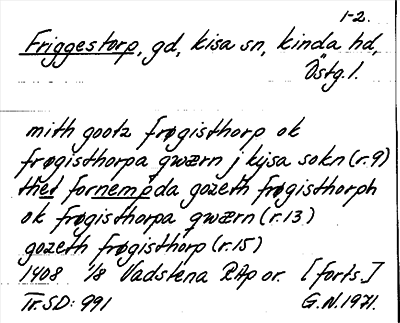 1-2.
Friggestorp, gd, Kisa sn, Kinda hd,
Östg.l.
mith gootz frøgisthorp ok
frøgisthorpa qwærn j kijsa sokn (r.9)
thet fornempda gozeth frøgisthorph
ok frøgisthorpa qwærn (r.13)
gozeth frøgisthorp (r.15)
1408 1/8 Vadstena RAp or. [forts.]
Tr. SD: 991 G.N. 1971.